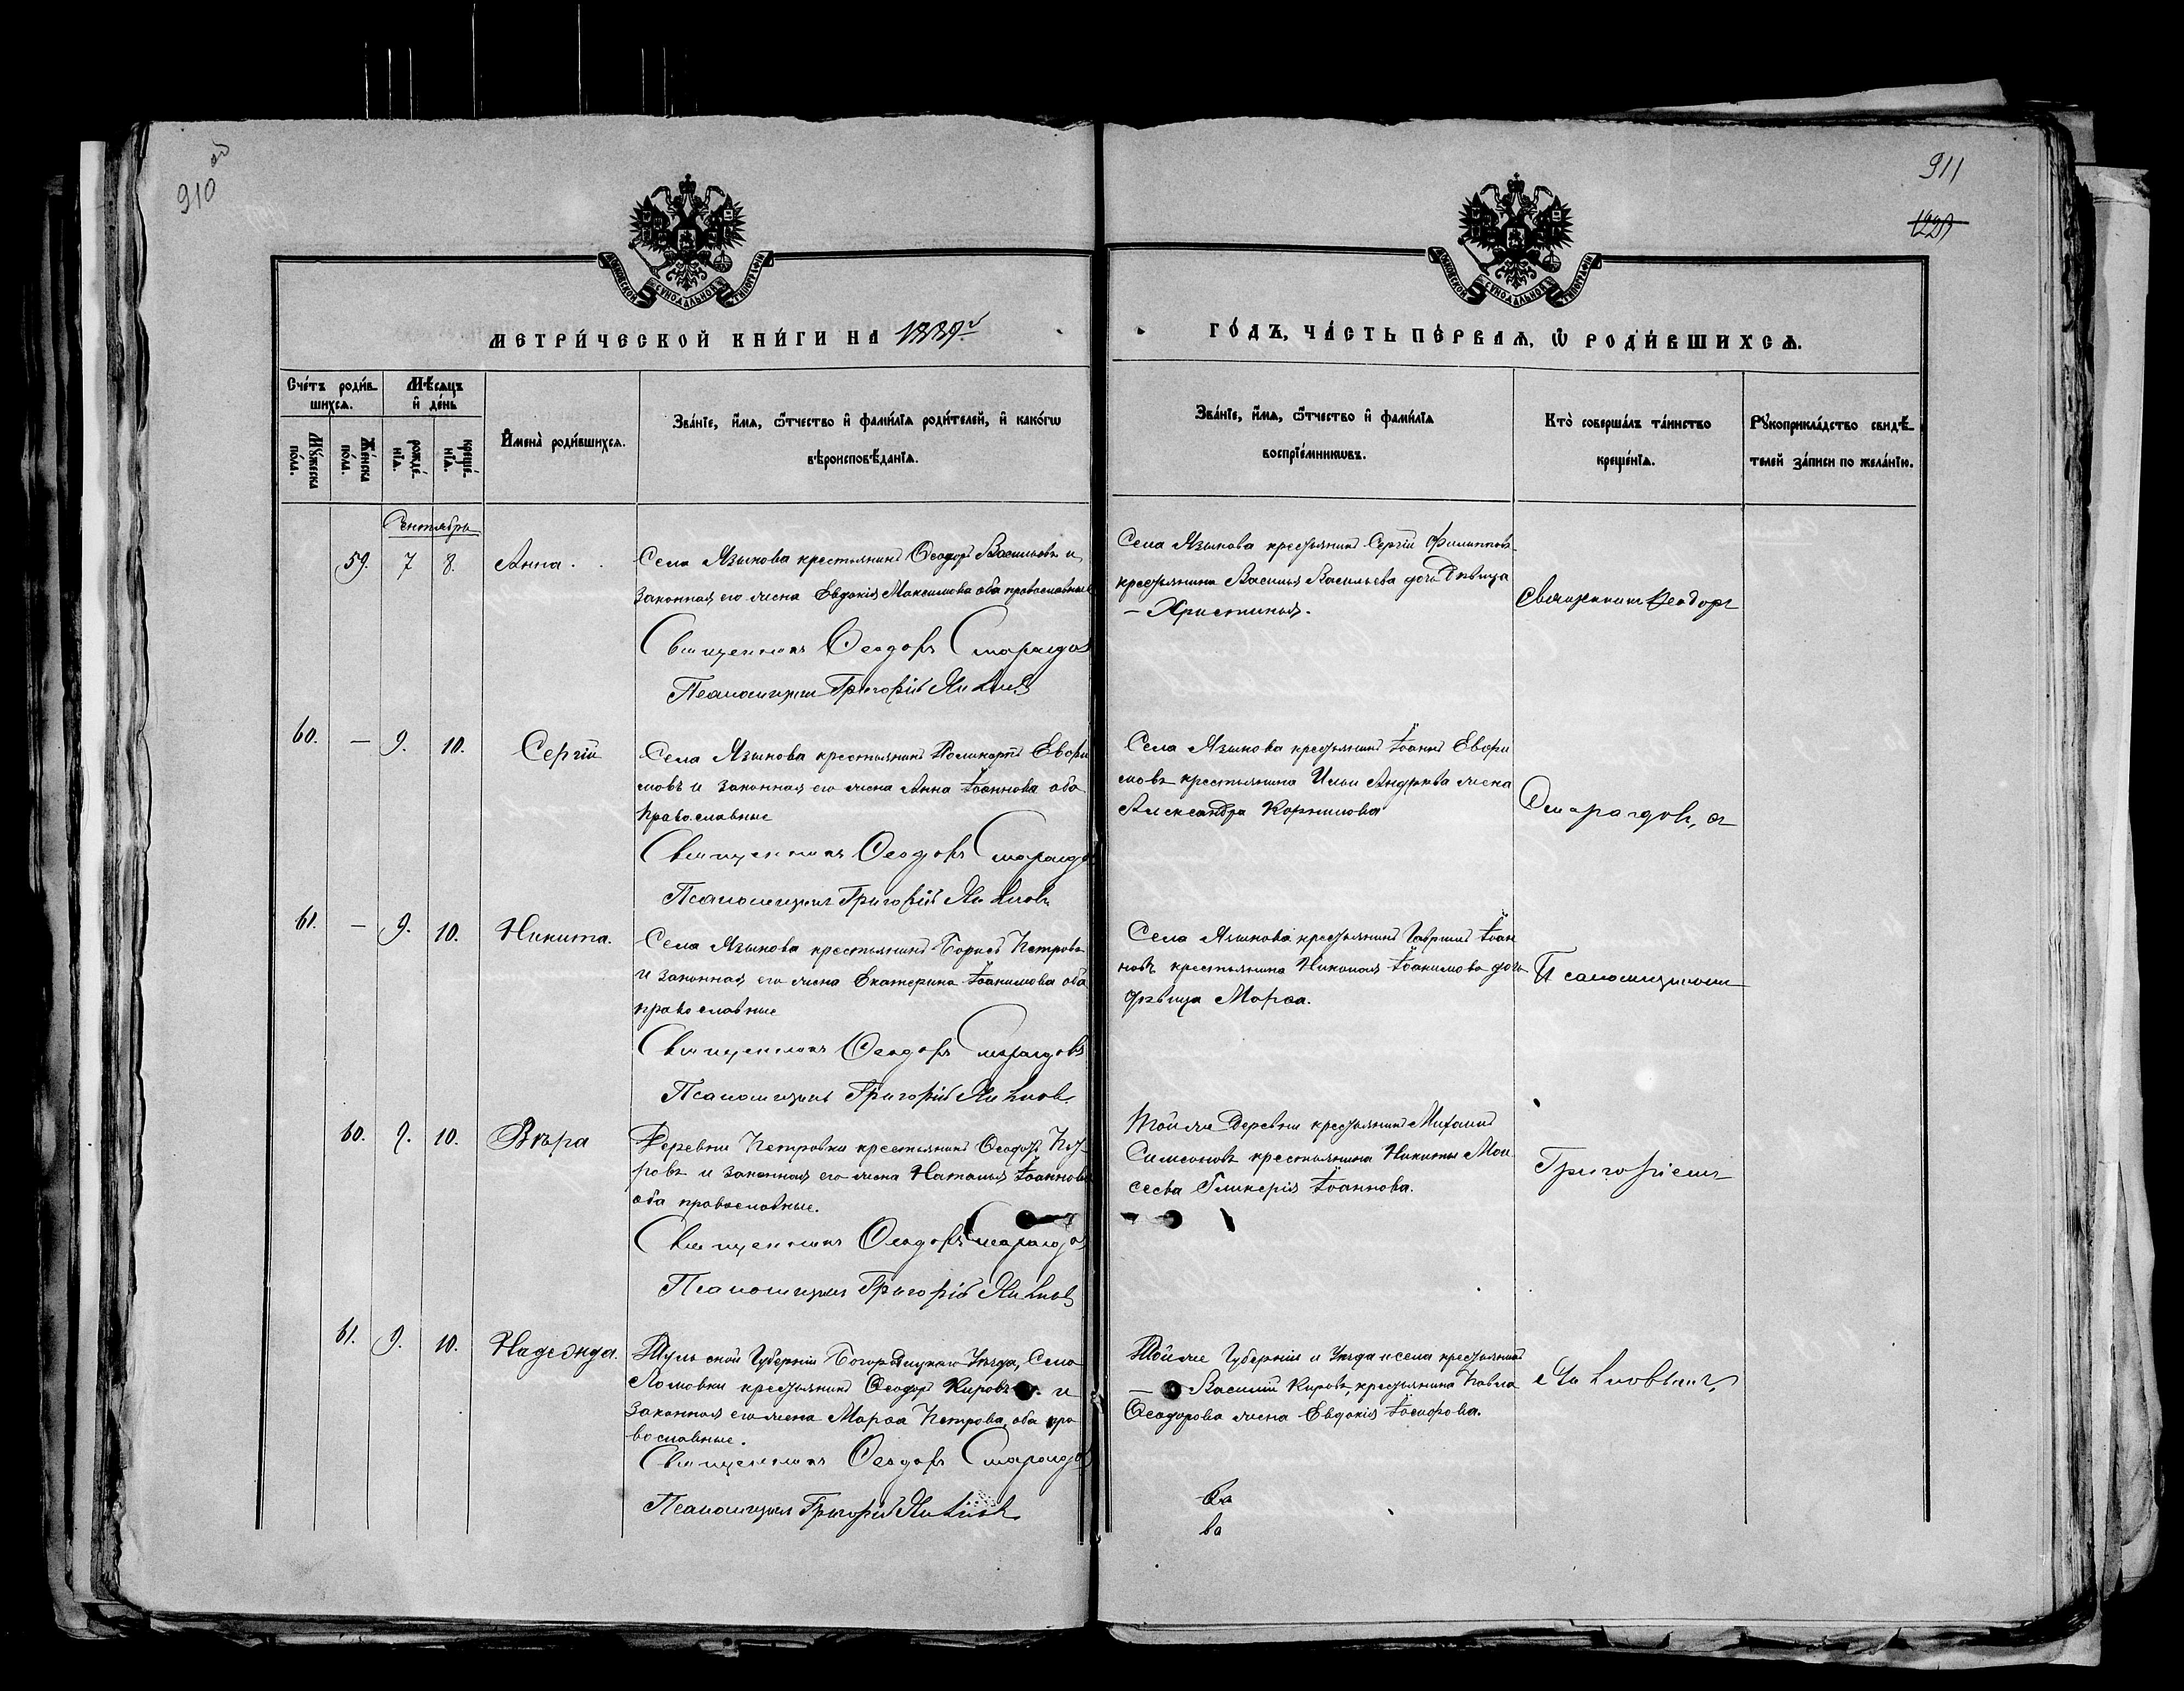 910 об
911
1229
МОСКОВСКОЙ СѴНОДАЛЬНОЙ ТИПОГРАФІИ
МОСКОВСКОЙ СѴНОДАЛЬНОЙ ТИПОГРАФІИ
МЕТРИ́ЧЕСКОЙ КНИ́ГИ НА 1889й
ГО́ДЪ, ЧА́СТЬ ПЕ́РВАѦ, Ѡ РОДИ́ВШИХСѦ.
Сче́тъ роди́вшихсѧ.
Мѣ́сѧцъ и де́нь
Му́жеска по́ла.
Же́нска по́ла.
рожде́нїѧ.
креще́нїѧ.
Имена̀ роди́вшихсѧ.
Зва́нїе, и́мѧ, ѻ́тчество и фами́лїѧ роди́телей, и како́гѡ
вѣроисповѣ́данїѧ.
Зва́нїе, и́мѧ, ѻ́тчество и фами́лїѧ
воспрїе́мникѡвъ.
Кто̀ соверша́лъ та́инство
креще́нїѧ.
Рꙋкоприкла́дство свидѣ́-
телей за́писи по жела́нїю.
Сентябрь
59. 7 8. Анна.
Села Языкова крестьянинъ Ѳеодоръ Васильевъ и
законная его жена Евдокія Максимова оба православные
Священникъ Ѳеодоръ Смарагдов
Псаломщикъ Григорій
Села Языкова крестьянинъ Сергій Филипповъ
крестьянина Василья Васильева дочь Дѣвица
– Христинья.
Священникъ Ѳеодоръ
60. – 9. 10. Сергій
Села Языкова крестьянинъ Поликарпъ Евфи
мовъ и законная его жена Анна Іоаннова оба
православные
Священникъ Ѳеодоръ Смарагдо
Псаломщикъ Григорій
Села Языкова крестьянинъ Іоаннъ Евфи
мовъ крестьянина Ильи Андреева жена
Александра Корнилова
Смарагдовъ, съ
61. – 9. 10. Никита.
Села Языкова крестьянинъ Борисъ Петровъ
и законная его жена Екатерина Іоакимова оба
православные
Священникъ Ѳеодоръ Смарагдовъ
Псаломщикъ Григорій
Села Языкова крестьянинъ Гавріилъ Іоан
новъ крестьянина Николая Іоакимова дочь
дѣвица Марѳа.
Псаломщикомъ
60. 9. 10. Вѣра
Деревни Петровки крестьянинъ Ѳеодоръ Пет-
ровъ и законная его жена Наталья Іоаннова
оба православные.
Священникъ Ѳеодоръ Смарагдо
Псаломщикъ Григорій
Той же Деревни крестьянинъ Михаилъ
Симеоновъ крестьянина Никиты Мои
сеева Гликерія Іоаннова.
Григоріемъ
61. 9. 10. Надежда.
Тульской Губерніи Богородицкаго Уѣзда, Села
Ломовки крестьянинъ Ѳеодоръ Кировъ и
законная его жена Марѳа Петрова, оба пра
вославные.
Священникъ Ѳеодоръ Смарагдо
Псаломщикъ Григорій
Той же Губерніи и Уѣзда и села крестьянинъ
– Василій Кировъ, крестьянина Павла
Ѳеодорова жена Евдокія Іосифова.
ва
ва